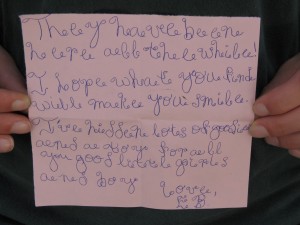 They have been
here all the while!
I hope what you find
will make you smile.
I've lots of goodies
and a for all
you good little girls
and boys
Love,
EB